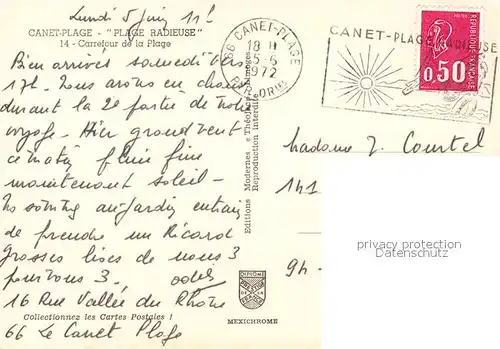 Lundi 5 juin 11h
CANET-PLAGE - "PLAGE RADIEUSE"
14 - Carrefour de la Plage
Bien arrivés samedi vers
17h. Nous avons eu chaud
durant la 2e partie de notre
voyage - Hier grand vent
ce matin pluie fine
maintenant soleil -
Ns sommes au jardin entrain
de prendre un Ricard
grosses bises de nous 3
pour vous 3.
16 Rue Vallée du Rhône
66 Le Canet Plage
Collectionnez les Cartes Postales !
Editions Modernes « Théojac » Limoges
Reproduction interdite
DIPLOME
MEXICHROME
66 CANET-PLAGE
18 H
5-6
1972
PYR. ORIENT.
CANET-PLAGE RADIEUSE
0,50
Madame J. Courtel
141
94-
privacy protection
Datenschutz